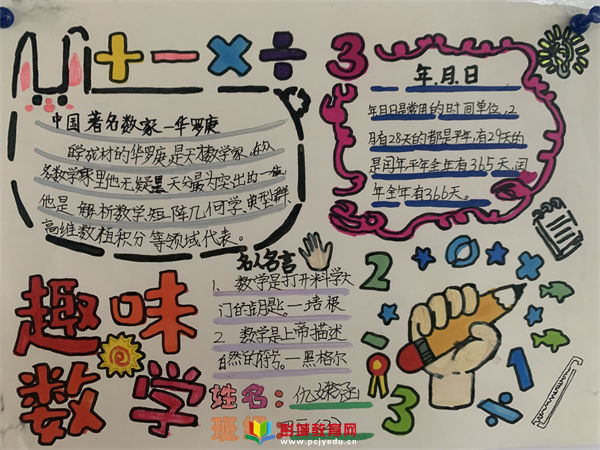 + − × ÷
3
中国著名数家—华罗庚
自学成材的华罗庚,是天才数学家,在众
多数学家里他无疑是天分最为突出的一位
他是解析数学矩阵几何学、典型群、
高维数植积分等领域代表。
年.月.日
年月日是常用的时间单位,2
月有28天的都是平年,有29天的
是闰年平年全年有365天,闰
年全年有366天。
名人名言
1、数学是打开科学大
门的钥匙。—培根
2、数学是上帝描述
自然的符号。—黑格尔
趣味
数学
2
1
÷
3
姓名:
班级
犀城教育网
www.pcjyedu.cn